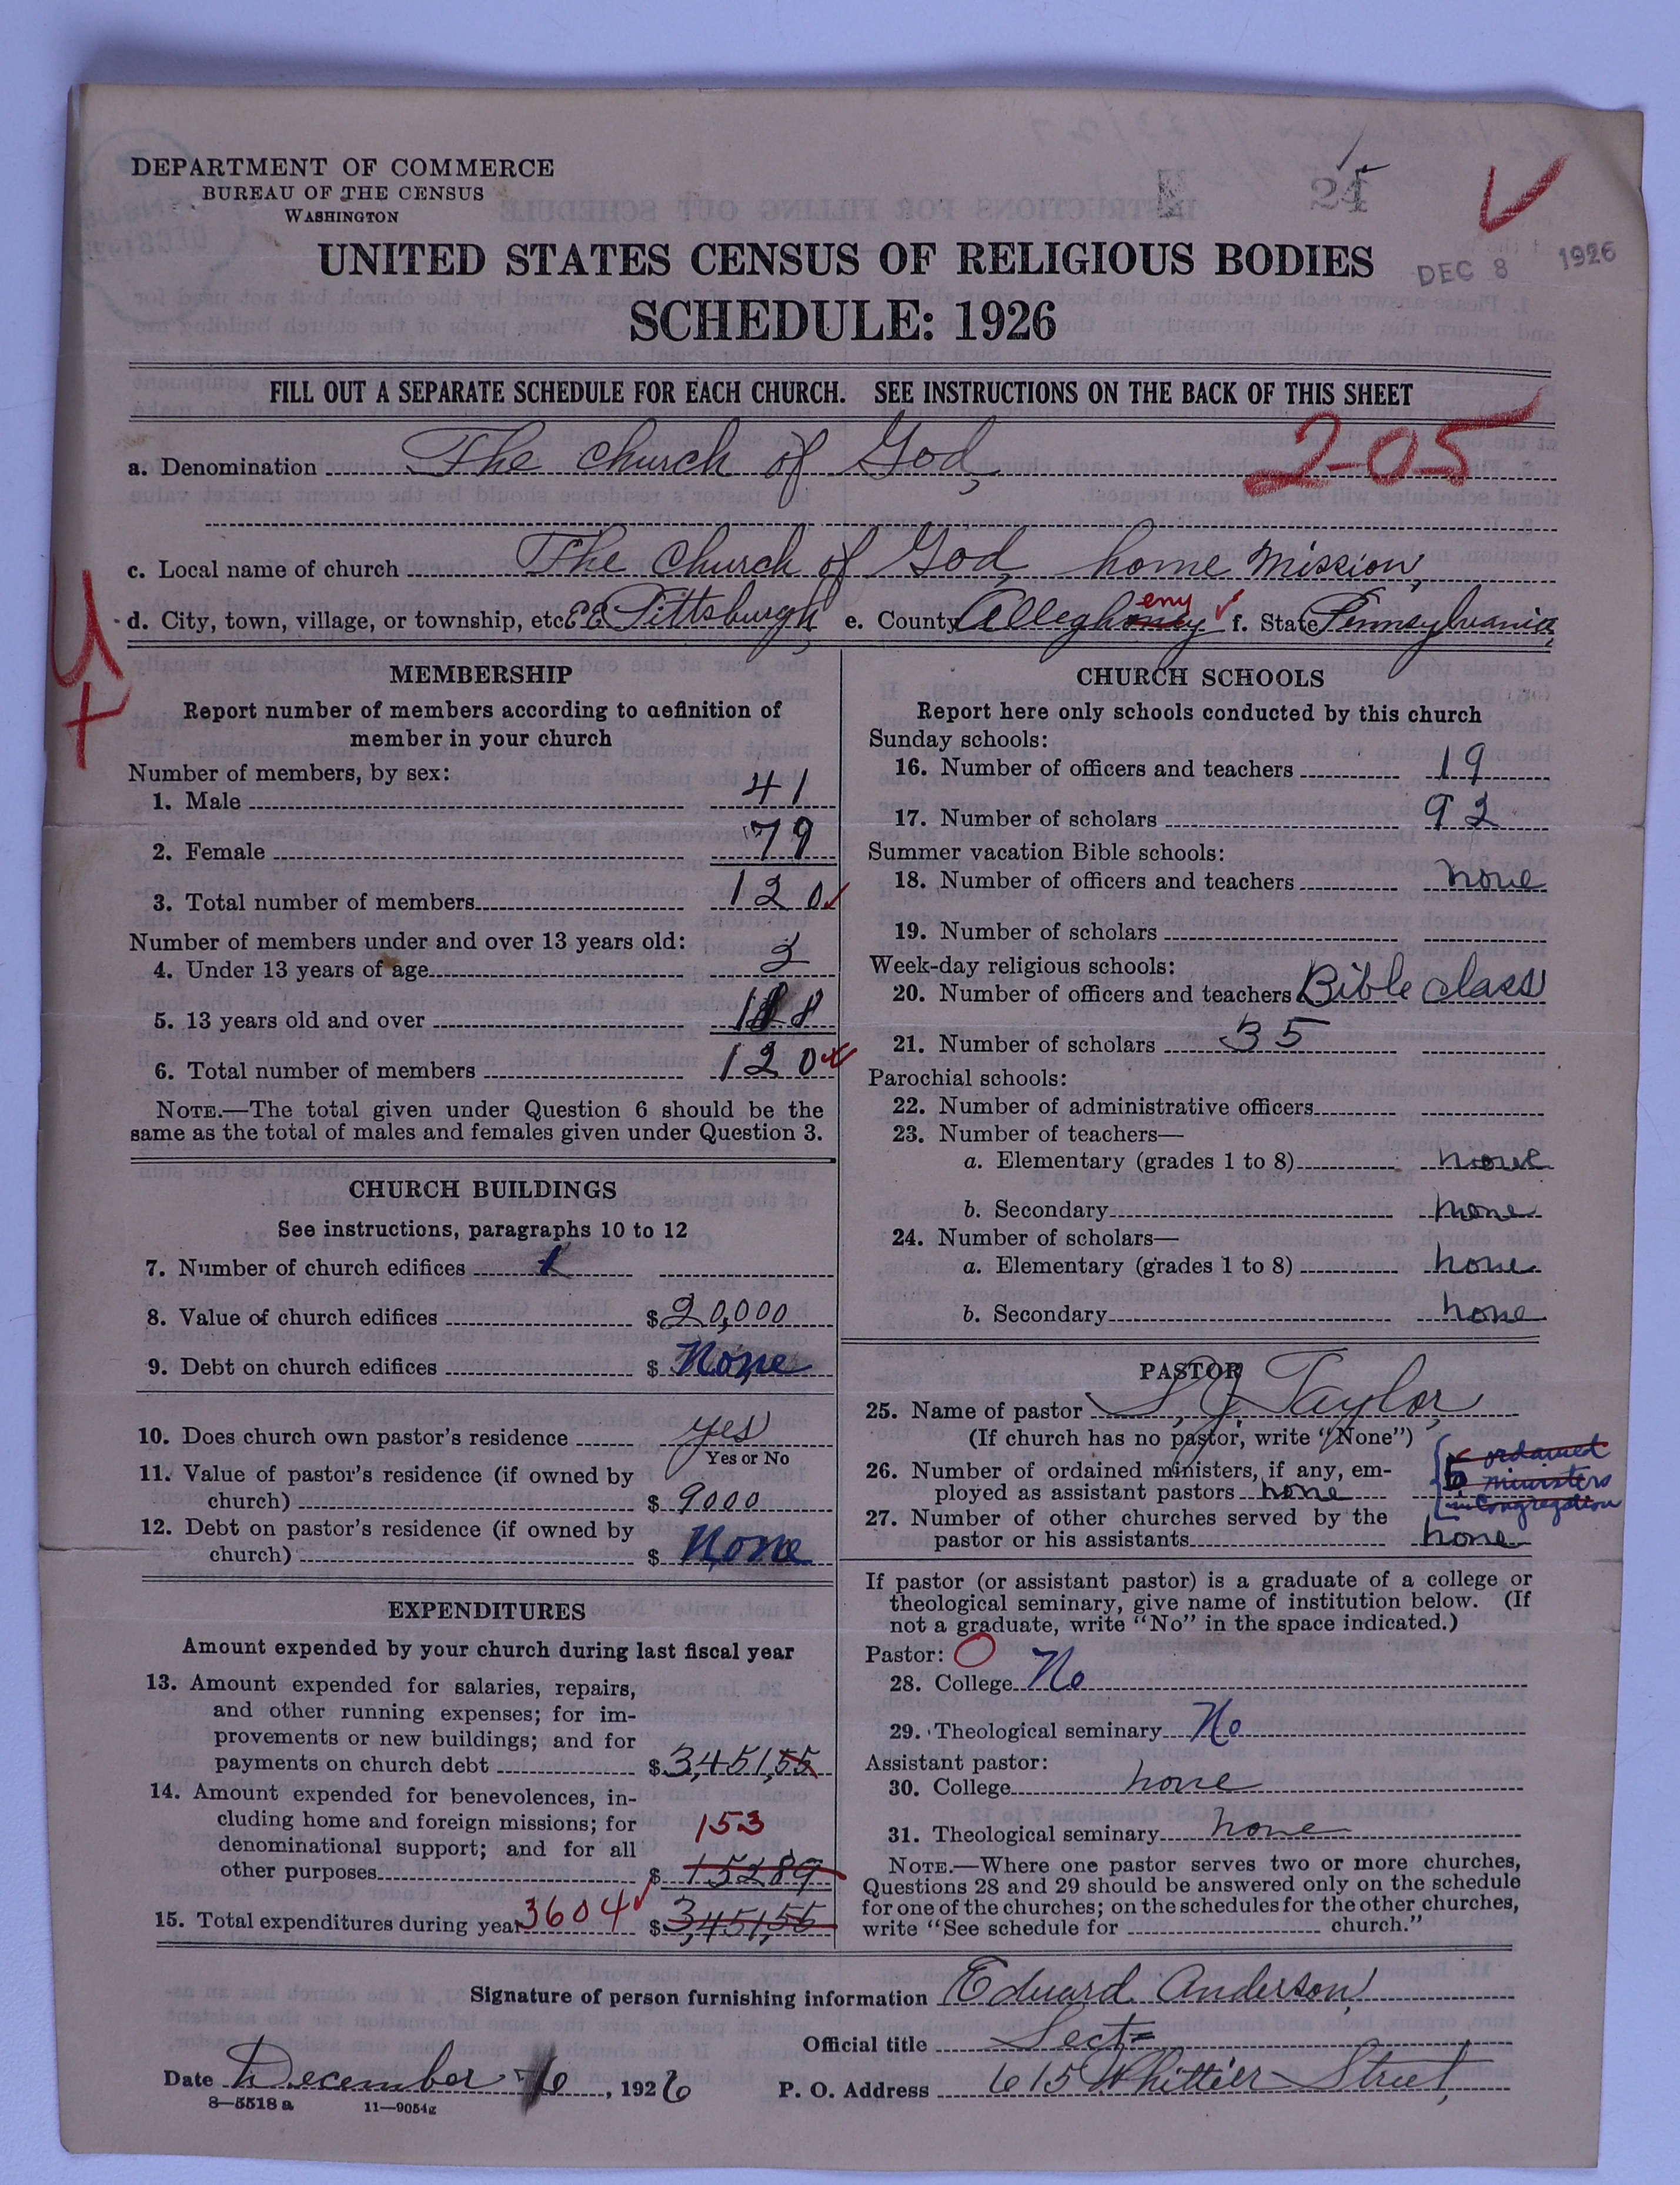 DEPARTMENT OF COMMERCE
BUREAU OF THE CENSUS
WASHINGTON
24
UNITED STATES CENSUS OF RELIGIOUS BODIES
DEC 8 1926
SCHEDULE: 1926
FILL OUT A SEPARATE SCHEDULE FOR EACH CHURCH. SEE INSTRUCTIONS ON THE BACK OF THIS SHEET
a. Denomination The church of God, 205
c. Local name of church The church of God, home Mission,
d. City, town, village, or township, etc. E.E. Pittsburgh, e. County Alleghoney eny f. State Pennsylvania
U
MEMBERSHIP
Report number of members according to definition of
member in your church
Number of members, by sex:
1. Male 41
2. Female 79
3. Total number of members 120
Number of members under and over 13 years old:
4. Under 13 years of age 2
5. 13 years old and over 118
6. Total number of members 120
NOTE.—The total given under Question 6 should be the
same as the total of males and females given under Question 3.
CHURCH BUILDINGS
See instructions, paragraphs 10 to 12
7. Number of church edifices 1
8. Value of church edifices $20,000
9. Debt on church edifices $ None
10. Does church own pastor's residence yes
Yes or No
11. Value of pastor's residence (if owned by
church) $ 9000
12. Debt on pastor's residence (if owned by
church) $ None
EXPENDITURES
Amount expended by your church during last fiscal year
13. Amount expended for salaries, repairs,
and other running expenses; for im-
provements or new buildings; and for
payments on church debt $3,451,55
14. Amount expended for benevolences, in-
cluding home and foreign missions; for
153
denominational support; and for all
other purposes $ 15289
15. Total expenditures during year 3604 $3,451,55
CHURCH SCHOOLS
Report here only schools conducted by this church
Sunday schools:
16. Number of officers and teachers 19
17. Number of scholars 92
Summer vacation Bible schools:
18. Number of officers and teachers none
19. Number of scholars
Week-day religious schools:
20. Number of officers and teachers Bible class
21. Number of scholars 35
Parochial schools:
22. Number of administrative officers
23. Number of teachers—
a. Elementary (grades 1 to 8) none
b. Secondary none
24. Number of scholars—
a. Elementary (grades 1 to 8) none
b. Secondary none
PASTOR
25. Name of pastor S, J. Taylor,
(If church has no pastor, write "None")
26. Number of ordained ministers, if any, em-
ployed as assistant pastors none
5 ordained
ministers
in congregation
27. Number of other churches served by the
pastor or his assistants none
If pastor (or assistant pastor) is a graduate of a college or
theological seminary, give name of institution below. (If
not a graduate, write "No" in the space indicated.)
Pastor: O
28. College No
29. Theological seminary No
Assistant pastor:
30. College none
31. Theological seminary none
NOTE.—Where one pastor serves two or more churches,
Questions 28 and 29 should be answered only on the schedule
for one of the churches; on the schedules for the other churches,
write "See schedule for church."
Signature of person furnishing information Eduard Anderson,
Official title Sect=
Date December 6, 1926 P. O. Address 615 Whittier Street,
8—5518 a 11—9054g